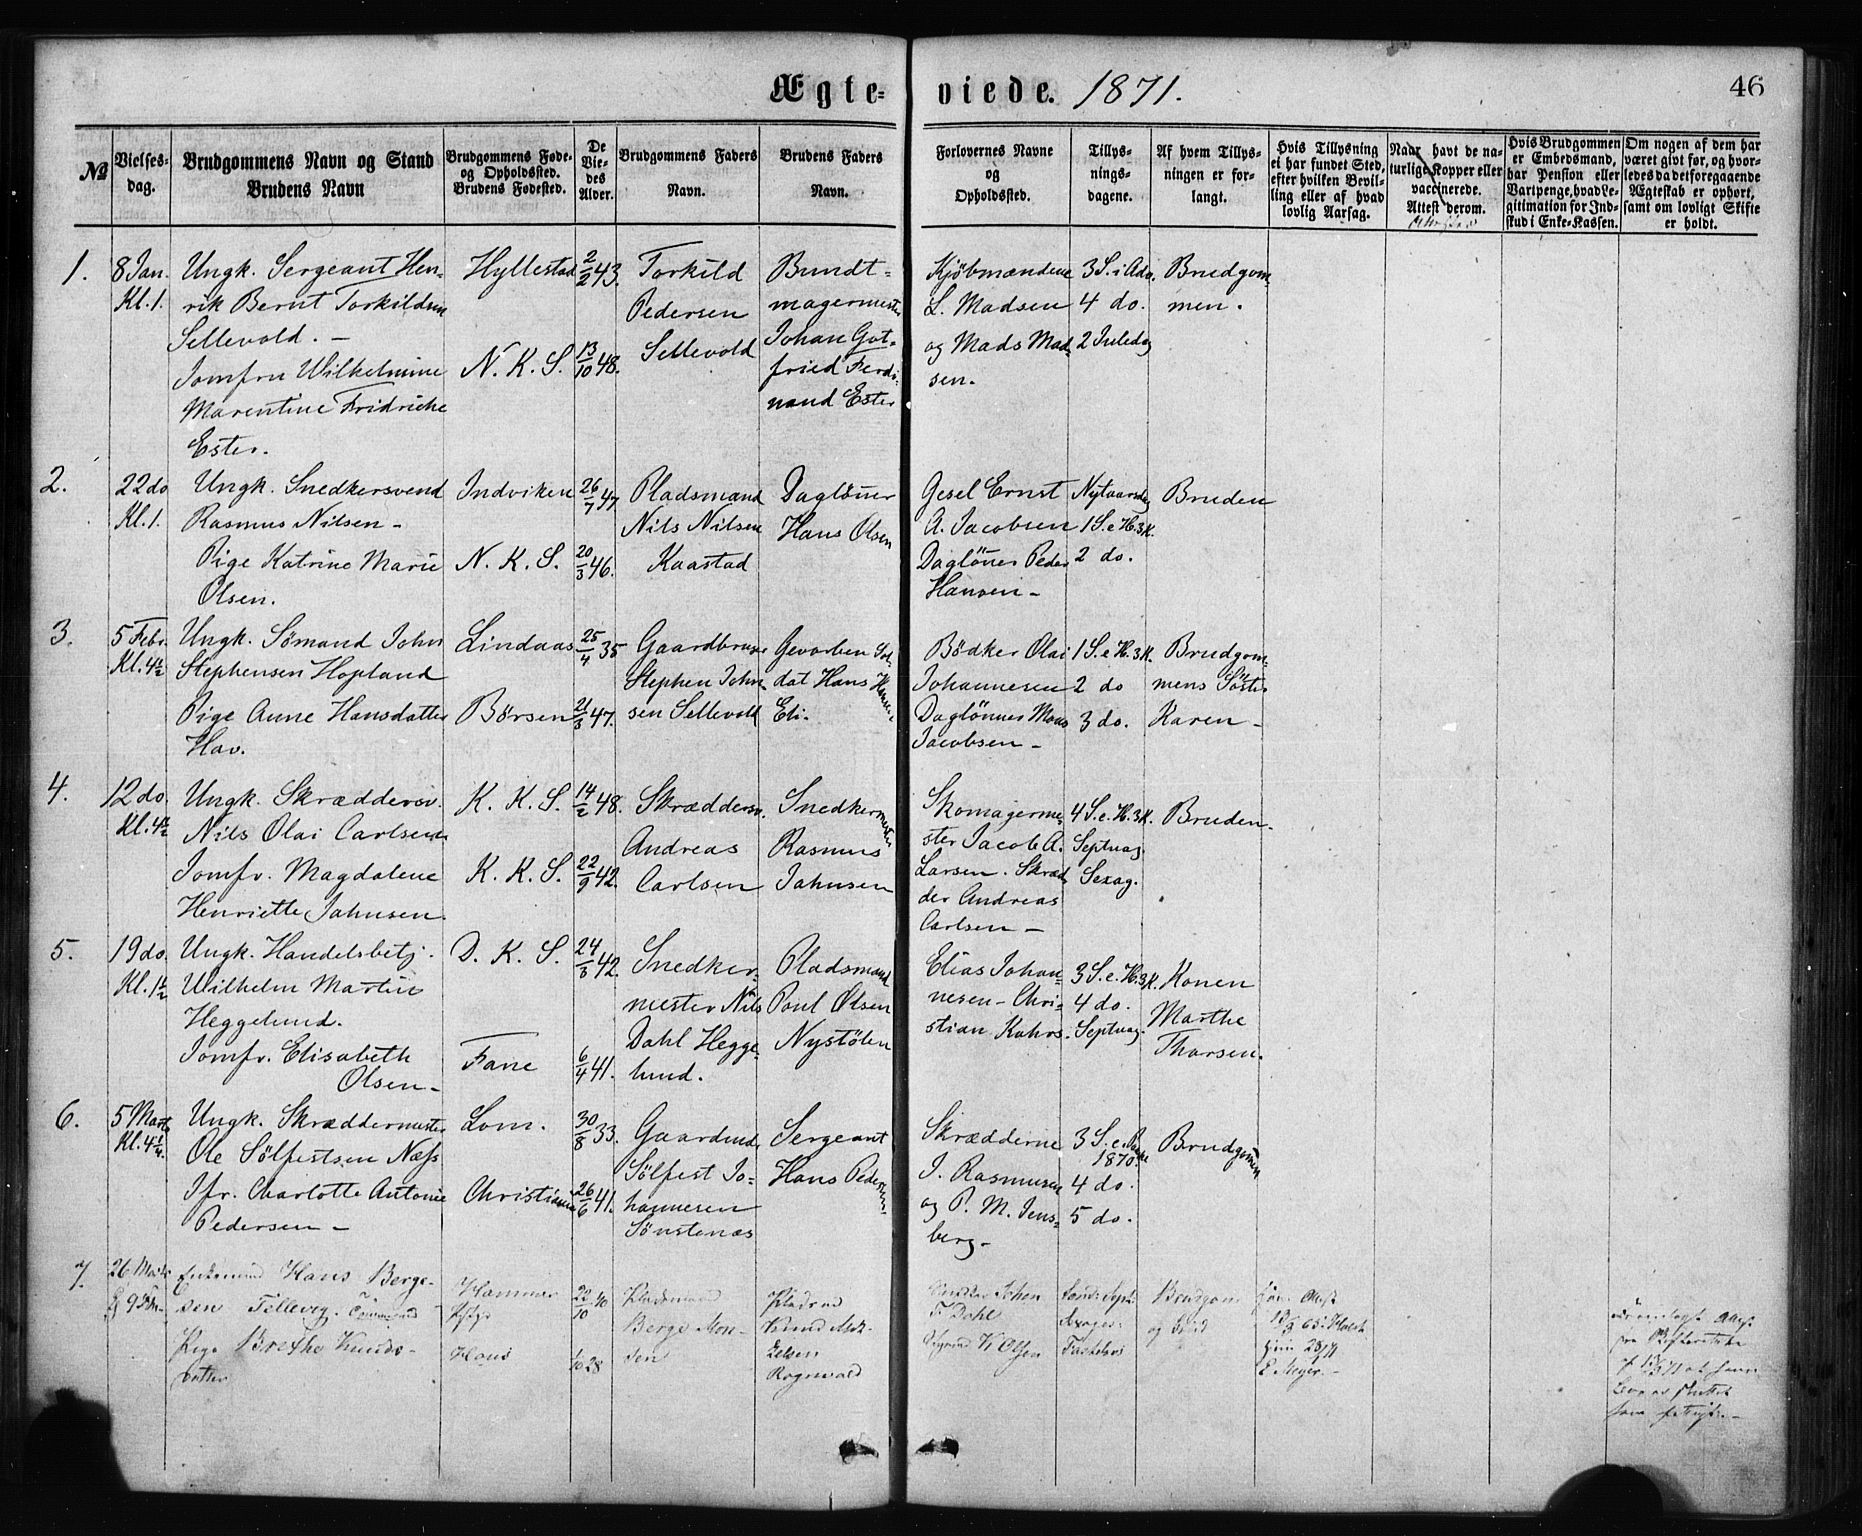 Ægte=viede. 1871. 46
№
Vielses-
dag.
Brudgommens Navn og Stand
Brudens Navn
Brudgommens Føde-
og Opholdssted.
Brudens Fødested.
De
Vie-
des
Alder.
Brudgommens Faders
Navn.
Brudens Faders
Navn.
Forlovernes Navne
og
Opholdssted.
Tillys-
nings-
dagene.
Af hvem Tillys-
ningen er for-
langt.
Hvis Tillysning
ei har fundet Sted,
efter hvilken Bevil-
ling eller af hvad
lovlig Aarsag.
Naar havt de na-
turlige Kopper eller
vaccinerede.
Attest derom.
Hvis Brudgommen
er Embedsmand,
har Pension eller
Vartpenge, hvad Le-
gitimation for Ind-
skud i Enke-Kassen.
Om nogen af dem har
været givt før, og hvor-
ledes da det foregaaende
Ægteskab er ophørt,
samt om lovligt Skifte
er holdt.
1.
8 Jan.
Kl. 1.
Ungk. Sergeant Hen-
rik Bernt Torkildsen
Sellevold. -
Jomfru Wilhelmine
Marentine Fridriche
Ester.
Hyllestad
N. K. S.
2/2 43.
13/10 48.
Torkild
Pedersen
Sellevold
Bundt=
magermester
Johan Got=
fried Ferdi-
nand Ester
Kjöbmændene
L. Madsen
og Mads Mad-
sen.
3 S. i Adv.
4 do.
2 Juledag
Brudgom-
men.
2.
22 do
Kl. 1.
Ungk. Snedkersvend
Rasmus Nilsen -
Pige Katrine Marie
Olsen.
Indviken
N. K. S.
26/7 47
20/3 46.
Pladsmand
Nils Nilsen
Kaastad
Daglöner
Hans Olsen
Gesel Ernst
A. Jacobsen
Daglöner Peder
Hansen -
Nytaarsdag
1 S. e H. 3 K.
2 do.
Bruden
3.
5 Febr.
Kl. 4½
Ungk. Sömand John
Stephensen Hopland
Pige Anne Hansdatter
Hav.
Lindaas
Börsen
25/4 35
21/3 47.
Gaardbruger
Stephen John-
sen Sellevold
Gevorben Sol-
dat Hans Hansen
Eli.
Bödker Olai
Johannesen
Daglönner Mons
Jacobsen -
1 S. e H. 3 K.
2 do
3 do.
Brudgom-
mens Söster
Karen -
4.
12 do.
Kl. 4½
Ungk. Skræddersv.
Nils Olai Carlsen
Jomfr. Magdalene
Henriette Jahnsen.
K. K. S.
K. K. S.
14/2 48.
22/9 42.
Skræddersv.
Andreas
Carlsen
Snedkermester
Rasmus
Jahnsen
Skomagerme-
ster Jacob A.
Larsen. Skræd-
der Andreas
Carlsen -
4 S. e. H. 3 K.
Septuag.
Sexag.
Bruden.
5.
19 do.
Kl. 1½
Ungk. Handelsbetj.
Wilhelm Martin
Heggelund.
Jomfr. Elisabeth
Olsen -
D. K. S.
Fane
24/3 42.
6/4 41.
Snedker-
mester Nils
Dahl Hegge-
lund.
Pladsmand
Poul Olsen
Nystölen
Elias Johan-
nesen - Chri-
stian Kahrs.
3 S. e. H. 3 K.
4 do.
Septuag.
Konen
Marthe
Thorsen.
6.
5 Marts
Kl. 4¼
Ungk. Skræddermester
Ole Sölfestsen Næss
Jfr. Charlotte Antonie
Pedersen -
Lom.
Christiania
30/8 33.
26/6 41.
Gaardmd.
Sölfest Jo-
hannesen
Sönstenæs
Sergeant
Hans Pedersen
Skrædderne
J. Rasmusen
og P. M. Jens-
berg -
3 S. e. Paaske
1870.
4 do.
5 do.
Brudgommen
7.
26 Marts
Enkemand Hans Berge-
sen Tellevig.
Pige Brethe Knuds-
datter
Hammer
Hous
22/10 40
1/10 28
Pladsmand
Berge Mon-
sen
Pladsmd
Knud Mik-
kelsen
Rognvald
Johan
F. Dahl
K Olsen
Sexages.
Fastelavn
Brudgom
og Brud
E Meyer. -